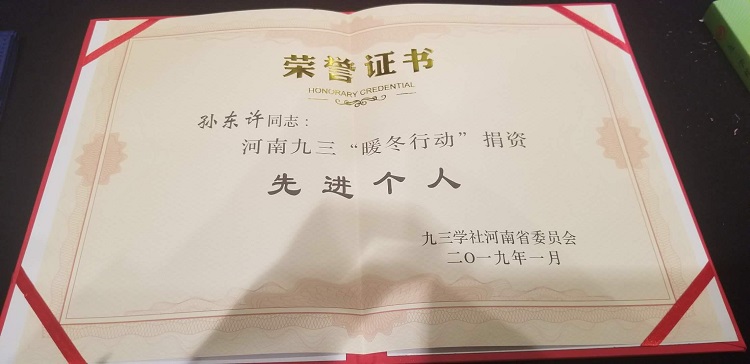 荣誉证书
HONORARY CREDENTIAL
孙东许同志：
河南九三“暖冬行动”捐资
先进个人
九三学社河南省委员会
二〇一九年一月